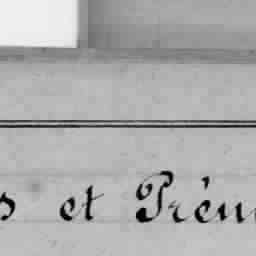 s et Prén